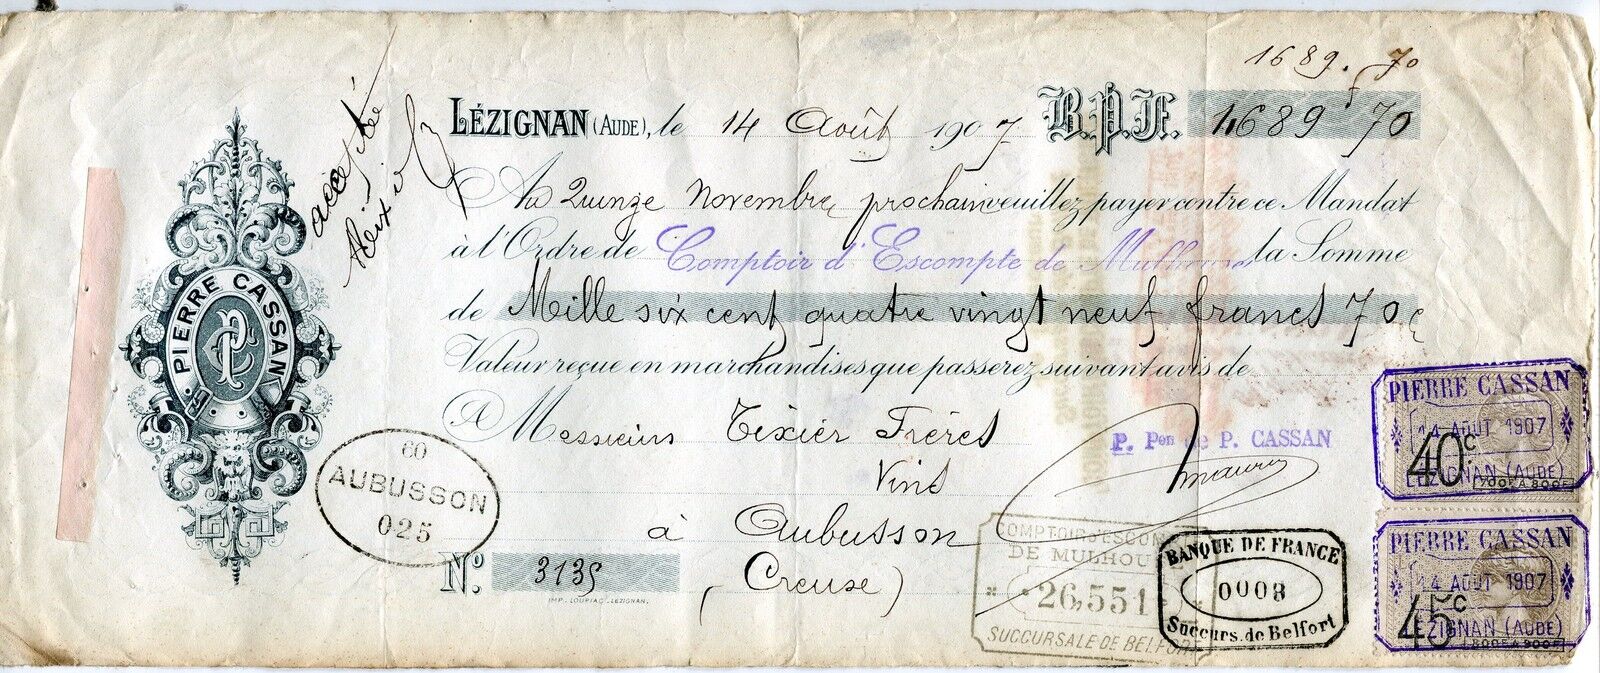 1689.70
LÉZIGNAN (AUDE), le 14 Août 1907 B.P.F. 1689 70
Au Quinze Novembre prochain veuillez payer contre ce Mandat
à l'Ordre de Comptoir d'Escompte de Mulhouse la Somme
de Mille six cent quatre vingt neuf francs 70 c
Valeur reçue en marchandises que passerez suivant avis de
A Messieurs Tixier Frères
Vins
à Aubusson
(Creuse)
No. 3135
IMP. LOUPIAC. LEZIGNAN.
acceptée
Tixier
F. PIERRE CASSAN
PC
60
AUBUSSON
025
P. Pon de P. CASSAN
COMPTOIR D'ESCOMPTE
DE MULHOUSE
26,551
SUCCURSALE DE BELFORT
BANQUE DE FRANCE
0008
Succurs. de Belfort
PIERRE CASSAN
14 AOUT 1907
40c
LEZIGNAN (AUDE)
700F A 800F
PIERRE CASSAN
14 AOUT 1907
45c
LEZIGNAN (AUDE)
800F A 900F